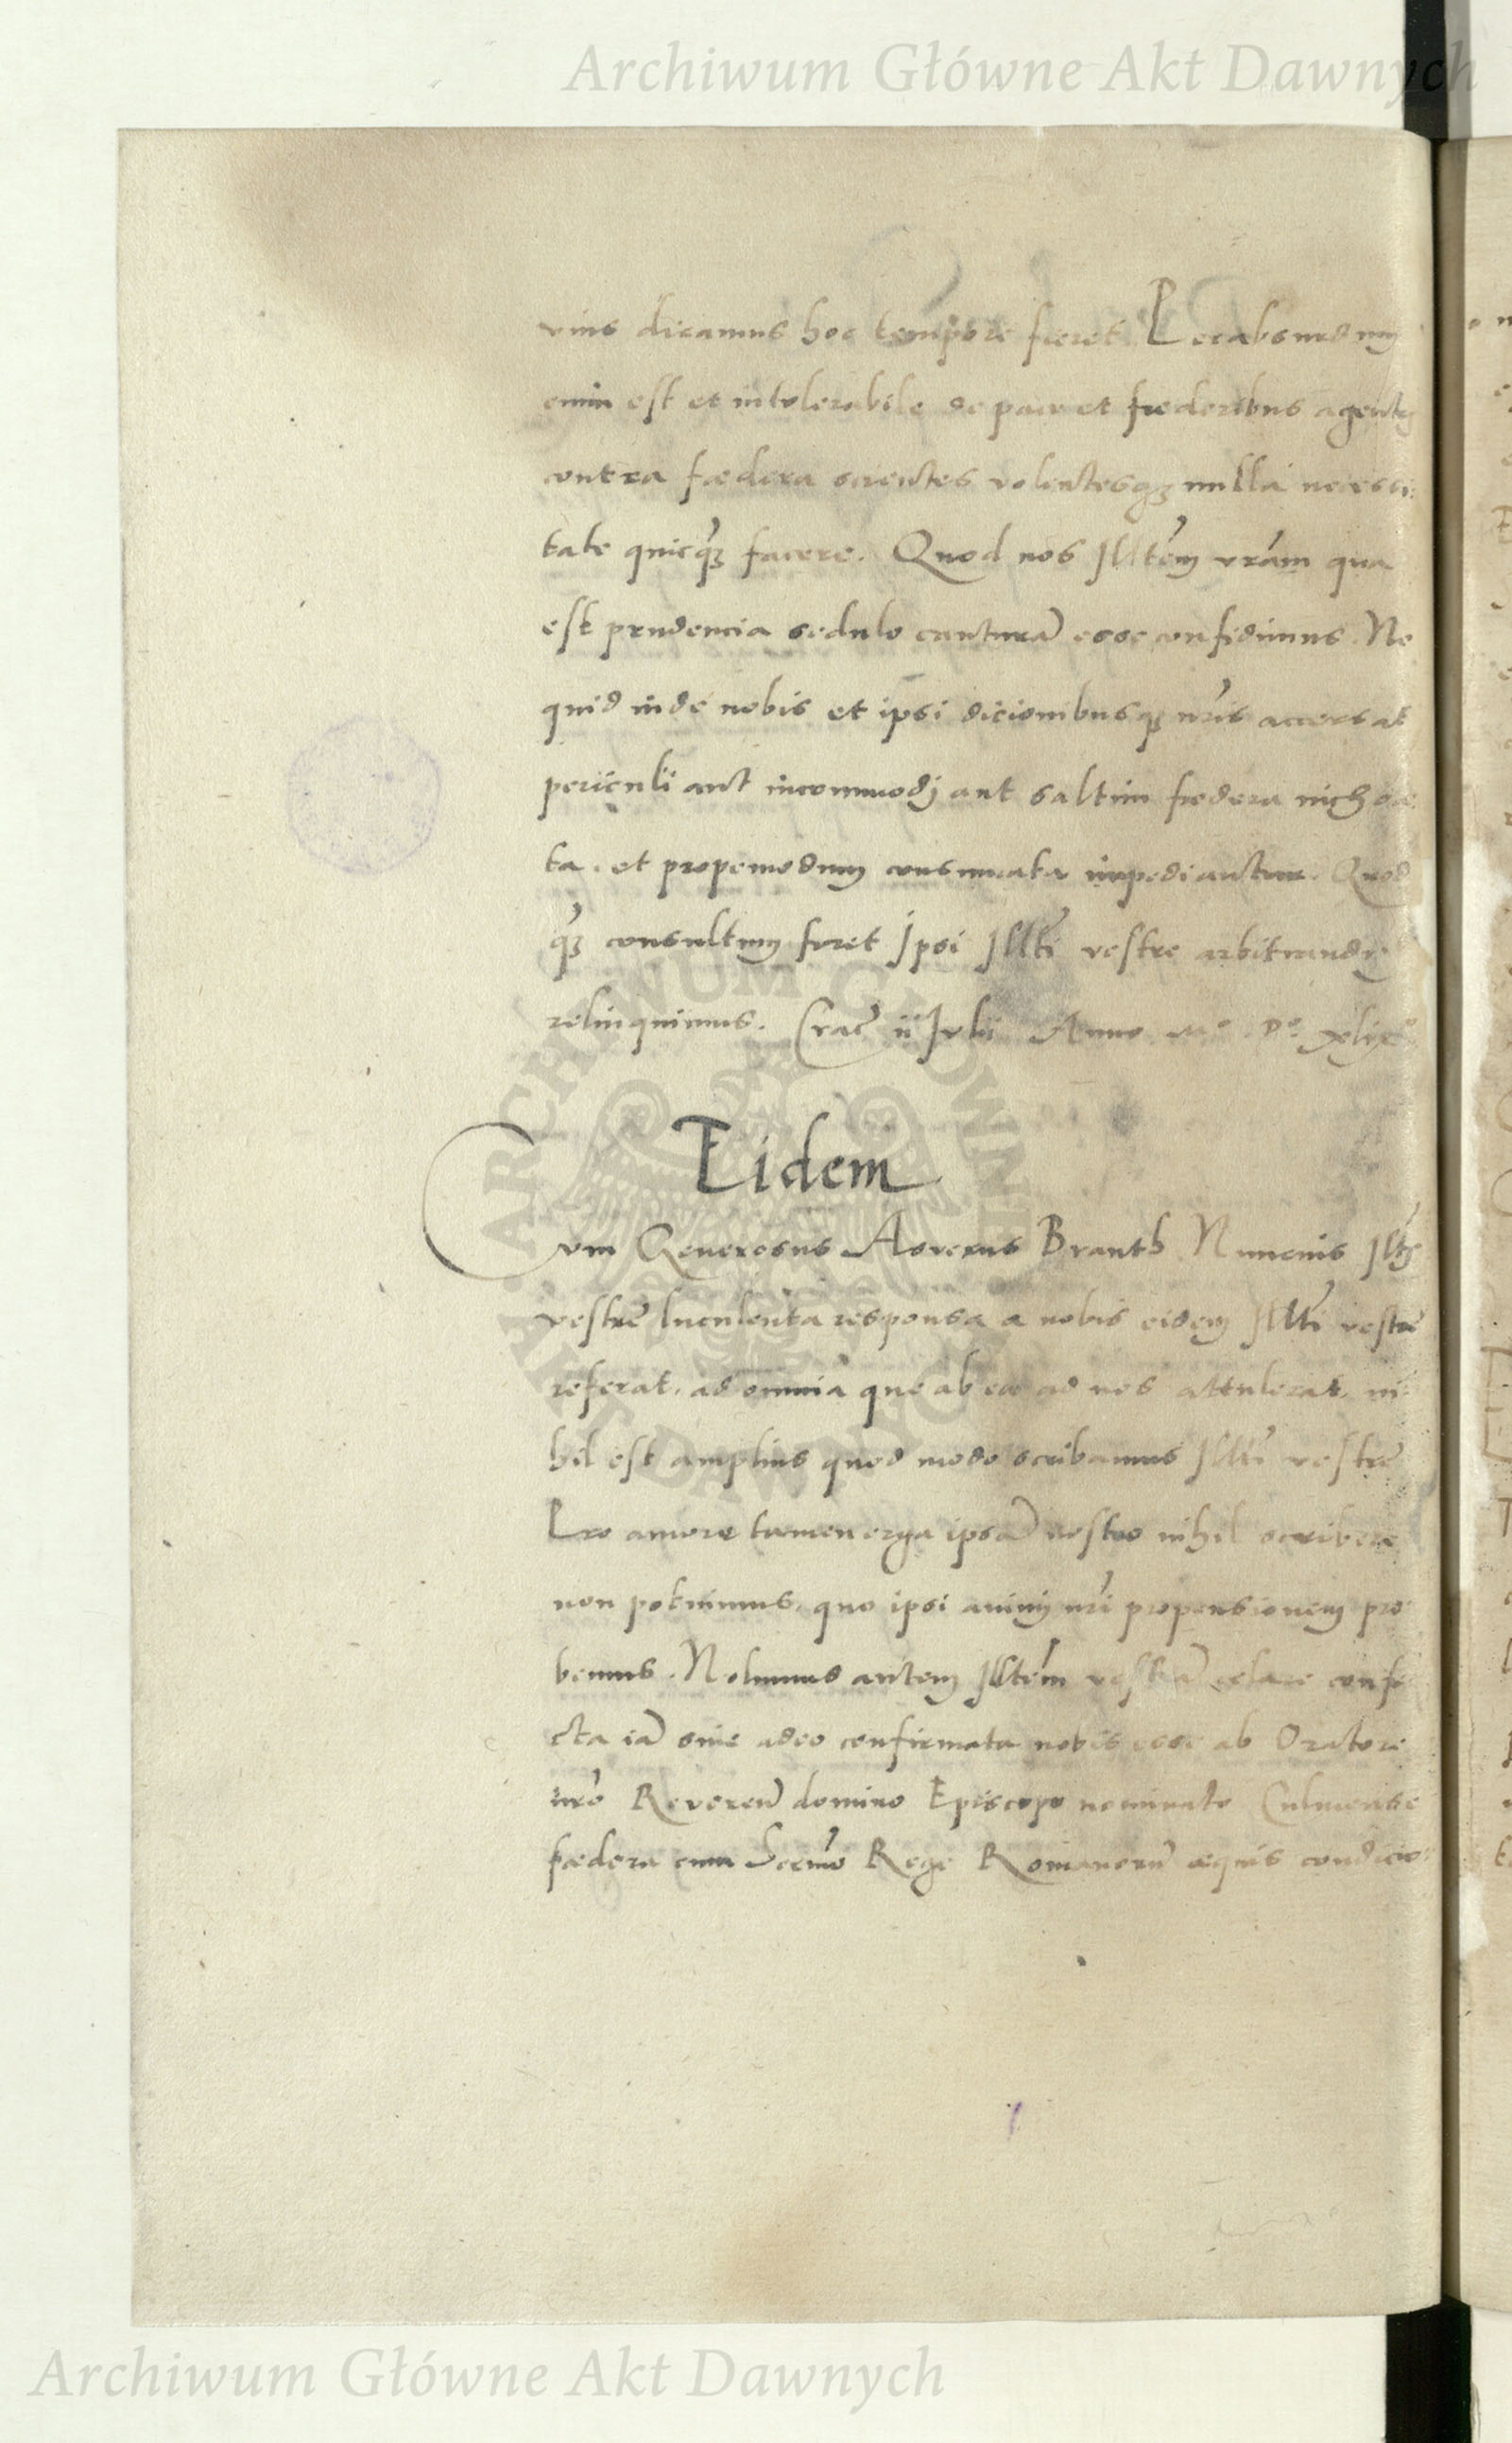 Archiwum Główne Akt Dawnych
vius dicamus hoc tempore fieret. Perabsurdum
enim est et intolerabile de pace et foederibus agentes
contra foedera scientes volentesq3 nulla necessi:
tate quicq3 facere. Quod nos Illtem vram qua
est prudencia sedulo cauturã esse confidimus. Ne
quid inde nobis et ipsi dicionibusq3 nris accersat
periculi aut incommodj aut saltim foedera
ta, et propemodum consumata impediantur. Quod
q3 consultum foret Ipsi Illti vestre arbitrandum
relinquimus. Crac ii Julii Anno Mo Do xlixo
Eidem
Cum Generosus Asverus Branth Nuncius Illtis
vestre luculenta responsa a nobis eidem Illti vestre
referat, ad omnia que ab ea ad nos attulerat, ni:
hil est amplius quod modo scribamus Illti vestre
Pro amore tamen erga ipsã nostro nihil scribere
non potuimus, quo ipsi animj nri propensionem pro
bemus. Nolumus autem Illtem vestrã celare confe
cta iã sive adeo confirmata nobis esse ab Oratore
nro Reveren domino Episcopo nominato Culmense
foedera cum Sermo Rege Romanorũ aequis condicio:
ARCHIWUM GŁÓWNE AKT DAWNYCH
Archiwum Główne Akt Dawnych